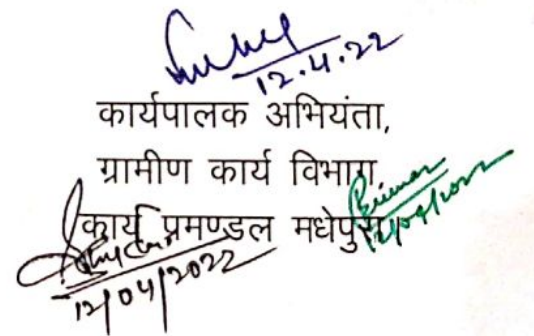 12.4.22
कार्यपालक अभियंता,
ग्रामीण कार्य विभाग
कार्य प्रमण्डल मधेपुरा
12/04/2022
12/04/2022